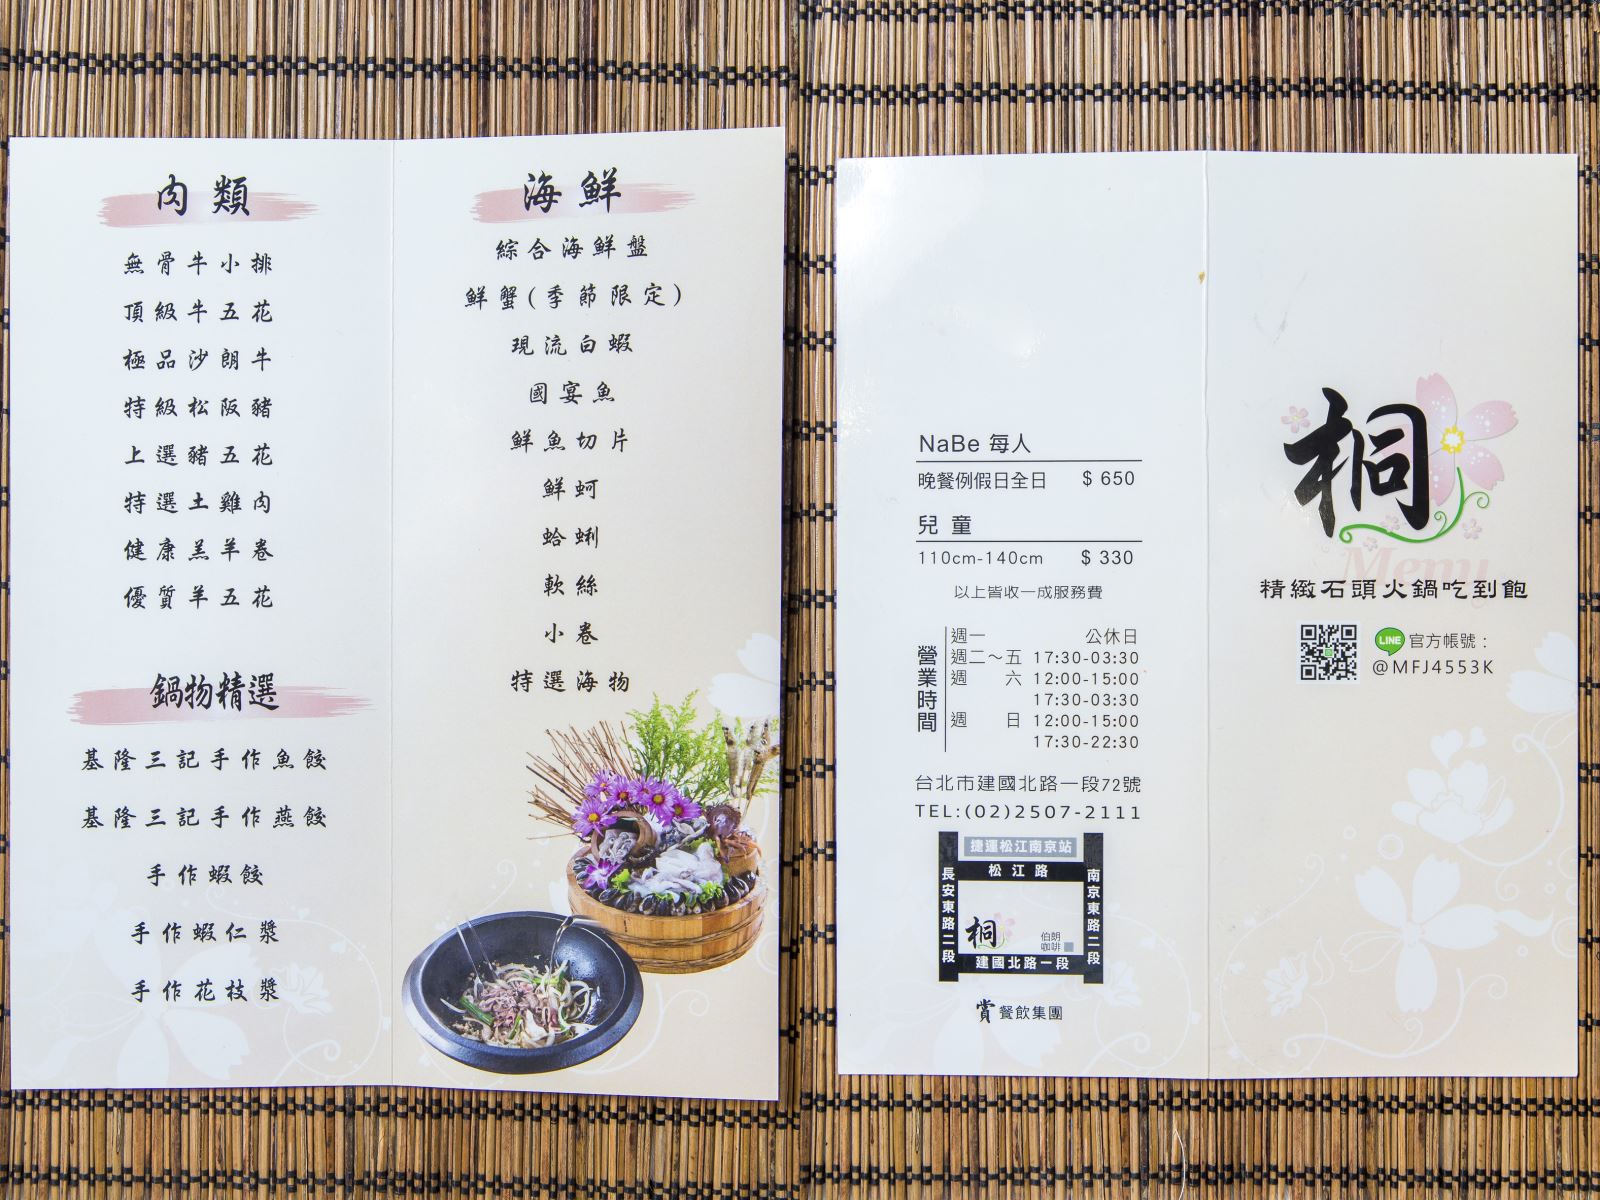 肉類
無骨牛小排
頂級牛五花
極品沙朗牛
特級松阪豬
上選豬五花
特選土雞肉
健康羔羊卷
優質羊五花
鍋物精選
基隆三記手作魚餃
基隆三記手作燕餃
手作蝦餃
手作蝦仁漿
手作花枝漿
海鮮
綜合海鮮盤
鮮蟹(季節限定)
現流白蝦
國宴魚
鮮魚切片
鮮蚵
蛤蜊
軟絲
小卷
特選海物
NaBe 每人
晚餐例假日全日 $ 650
兒童
110cm-140cm $ 330
以上皆收一成服務費
營業時間
週一 公休日
週二～五 17:30-03:30
週 六 12:00-15:00
17:30-03:30
週 日 12:00-15:00
17:30-22:30
台北市建國北路一段72號
TEL:(02)2507-2111
捷運松江南京站
松江路
長安東路二段
南京東路二段
桐
伯朗
咖啡
建國北路一段
賞 餐飲集團
桐
Menu
精緻石頭火鍋吃到飽
LINE 官方帳號：
@MFJ4553K